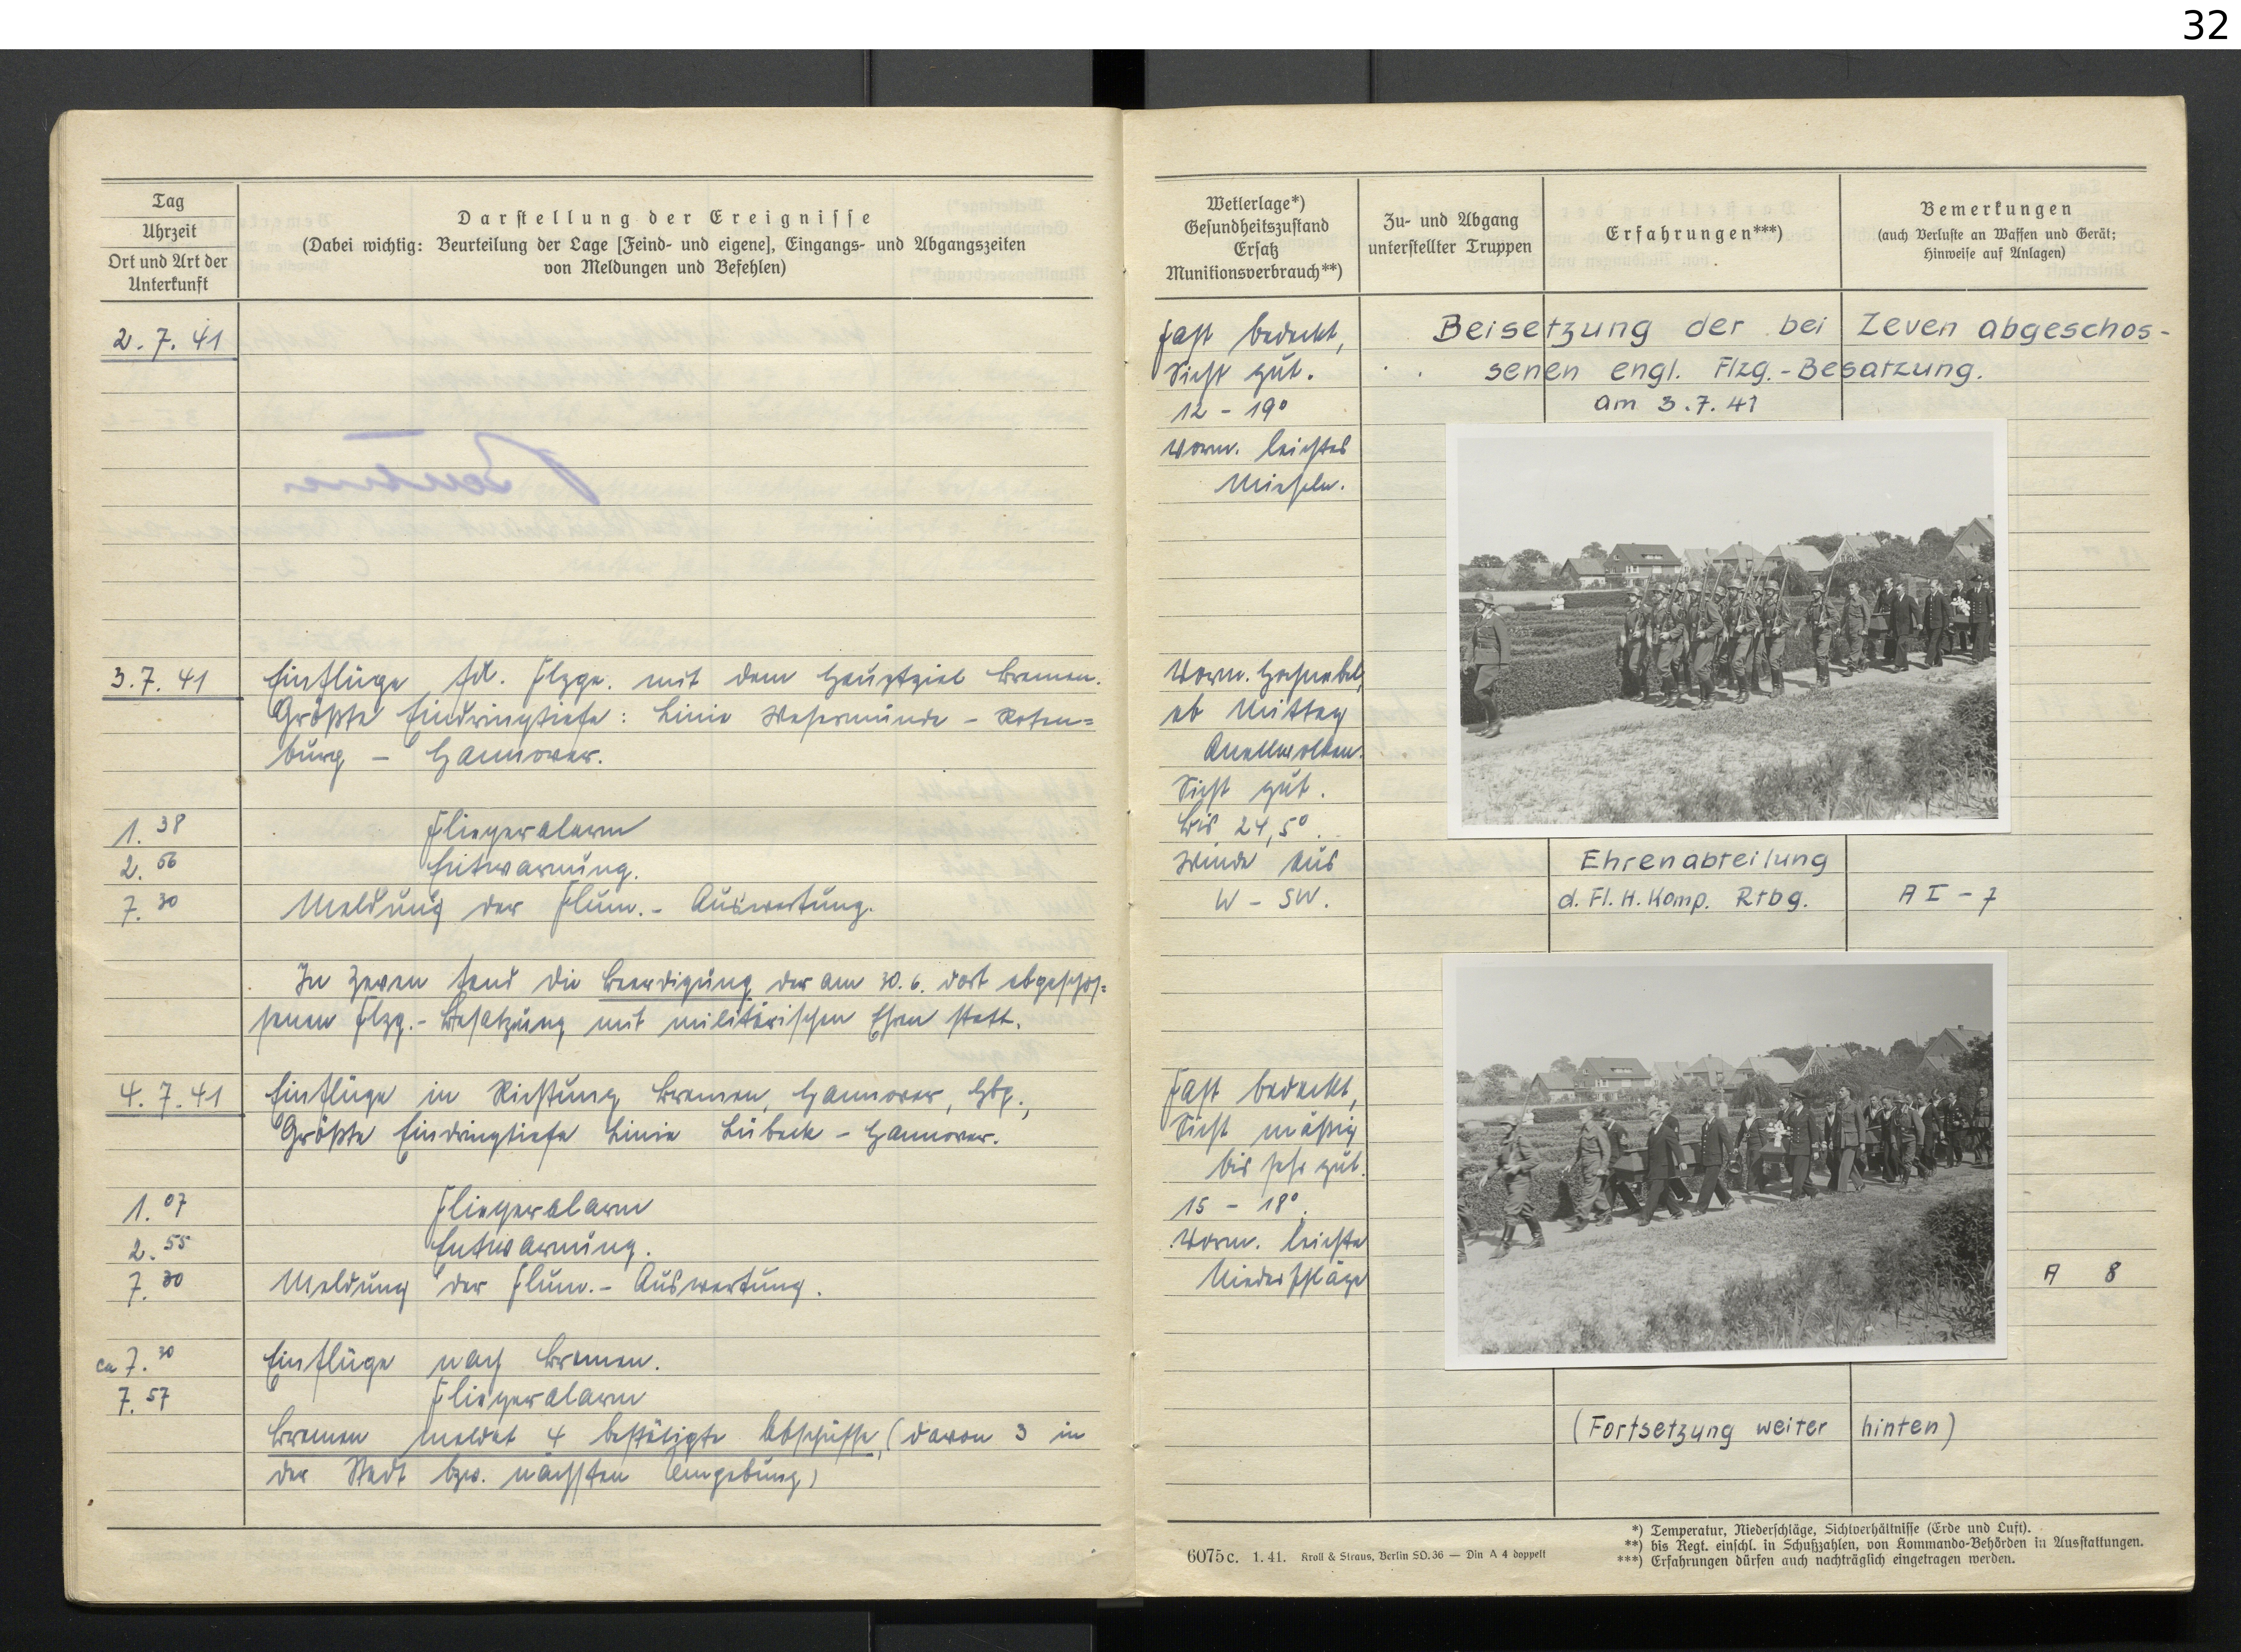 32
Tag
Uhrzeit
Ort und Art der
Unterkunft
Darstellung der Ereignisse
(Dabei wichtig: Beurteilung der Lage [Feind- und eigene], Eingangs- und Abgangszeiten
von Meldungen und Befehlen)
2.7.41
3.7.41 Einflüge fdl. Flzge. mit dem Hauptziel Bremen.
Größte Eindringtiefe: Linie Wesermünde - Roten=
burg - Hannover.
1.38 Fliegeralarm
2.56 Entwarnung.
7.30 Meldung der Flum.- Auswertung.
In Zeven fand die Beerdigung der am 30.6. dort abgeschos=
senen Flzg.- Besatzung mit militärischen Ehren statt.
4.7.41 Einflüge in Richtung Bremen, Hannover, Hbg.,
Größte Eindringtiefe Linie Lübeck - Hannover.
1.07 Fliegeralarm
2.55 Entwarnung.
7.30 Meldung der Flum.- Auswertung.
ca 7.30 Einflüge nach Bremen.
7.57 Fliegeralarm
Bremen meldet 4 bestätigte Abschüsse, (davon 3 in
der Stadt bzw. nächsten Umgebung)
Wetterlage*)
Gesundheitszustand
Ersatz
Munitionsverbrauch**)
Zu- und Abgang
unterstellter Truppen
Erfahrungen***)
Bemerkungen
(auch Verluste an Waffen und Gerät;
Hinweise auf Anlagen)
Fast bedeckt,
Sicht gut.
12 - 19°
Vorm. leichtes
Nieseln.
Beisetzung der bei Zeven abgeschos-
senen engl. Flzg.-Besatzung.
am 3.7.41
Vorm. Hochnebel,
ab Mittag
Quellwolken.
Sicht gut.
Bis 24,5°.
Winde aus
W - SW.
Ehrenabteilung
d. Fl. H. Komp. Rtbg.
A I - 7
Fast bedeckt,
Sicht mäßig
bis sehr gut.
15 - 18°.
Vorm. leichte
Niederschläge
A 8
(Fortsetzung weiter hinten)
6075c. 1.41. Kroll & Straus, Berlin SO.36 — Din A 4 doppelt
*) Temperatur, Niederschläge, Sichtverhältnisse (Erde und Luft).
**) bis Regt. einschl. in Schußzahlen, von Kommando-Behörden in Ausstattungen.
***) Erfahrungen dürfen auch nachträglich eingetragen werden.